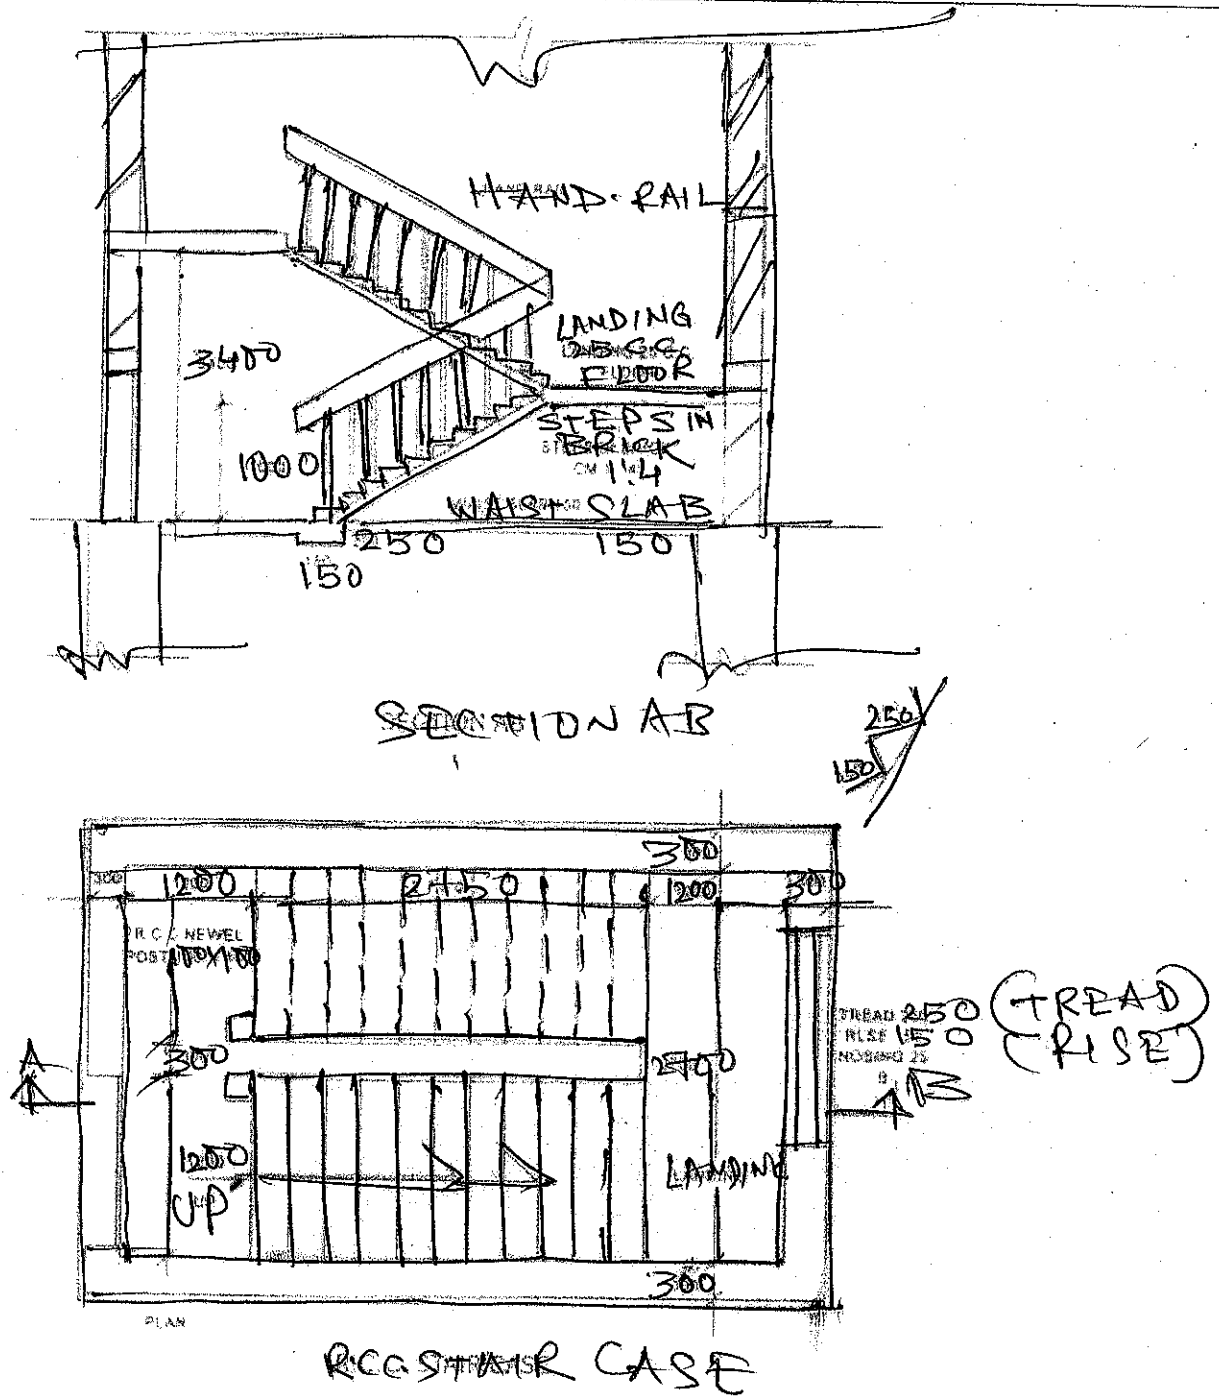 HAND-RAIL
LANDING
25 C.C.
FLOOR
3400
STEPS IN
BRICK
CM 1:4
1000
WAIST SLAB
250 150
150
SECTION AB
250
150
300
300 1200 2450 1200 300
R.C.C NEWEL
POST 100X100
TREAD 250 (TREAD)
RISE 150 (RISE)
NOSING 25
A 300 2700
B B
1200
UP
LANDING
300
PLAN
RCC STAIR CASE